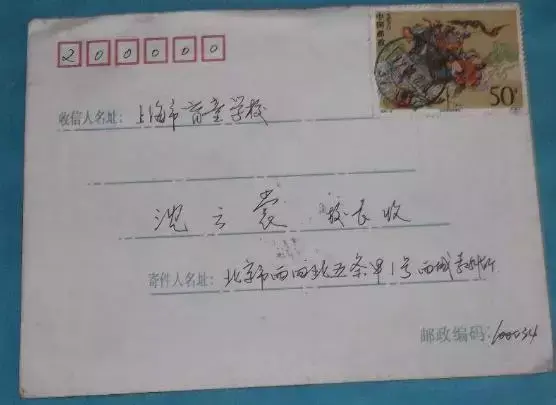 200000
中国邮政
50分
收信人名址: 上海市育童学校
沈云裳 校长收
寄件人名址: 北京市西四北五条甲1号西城教科所
邮政编码: 100034